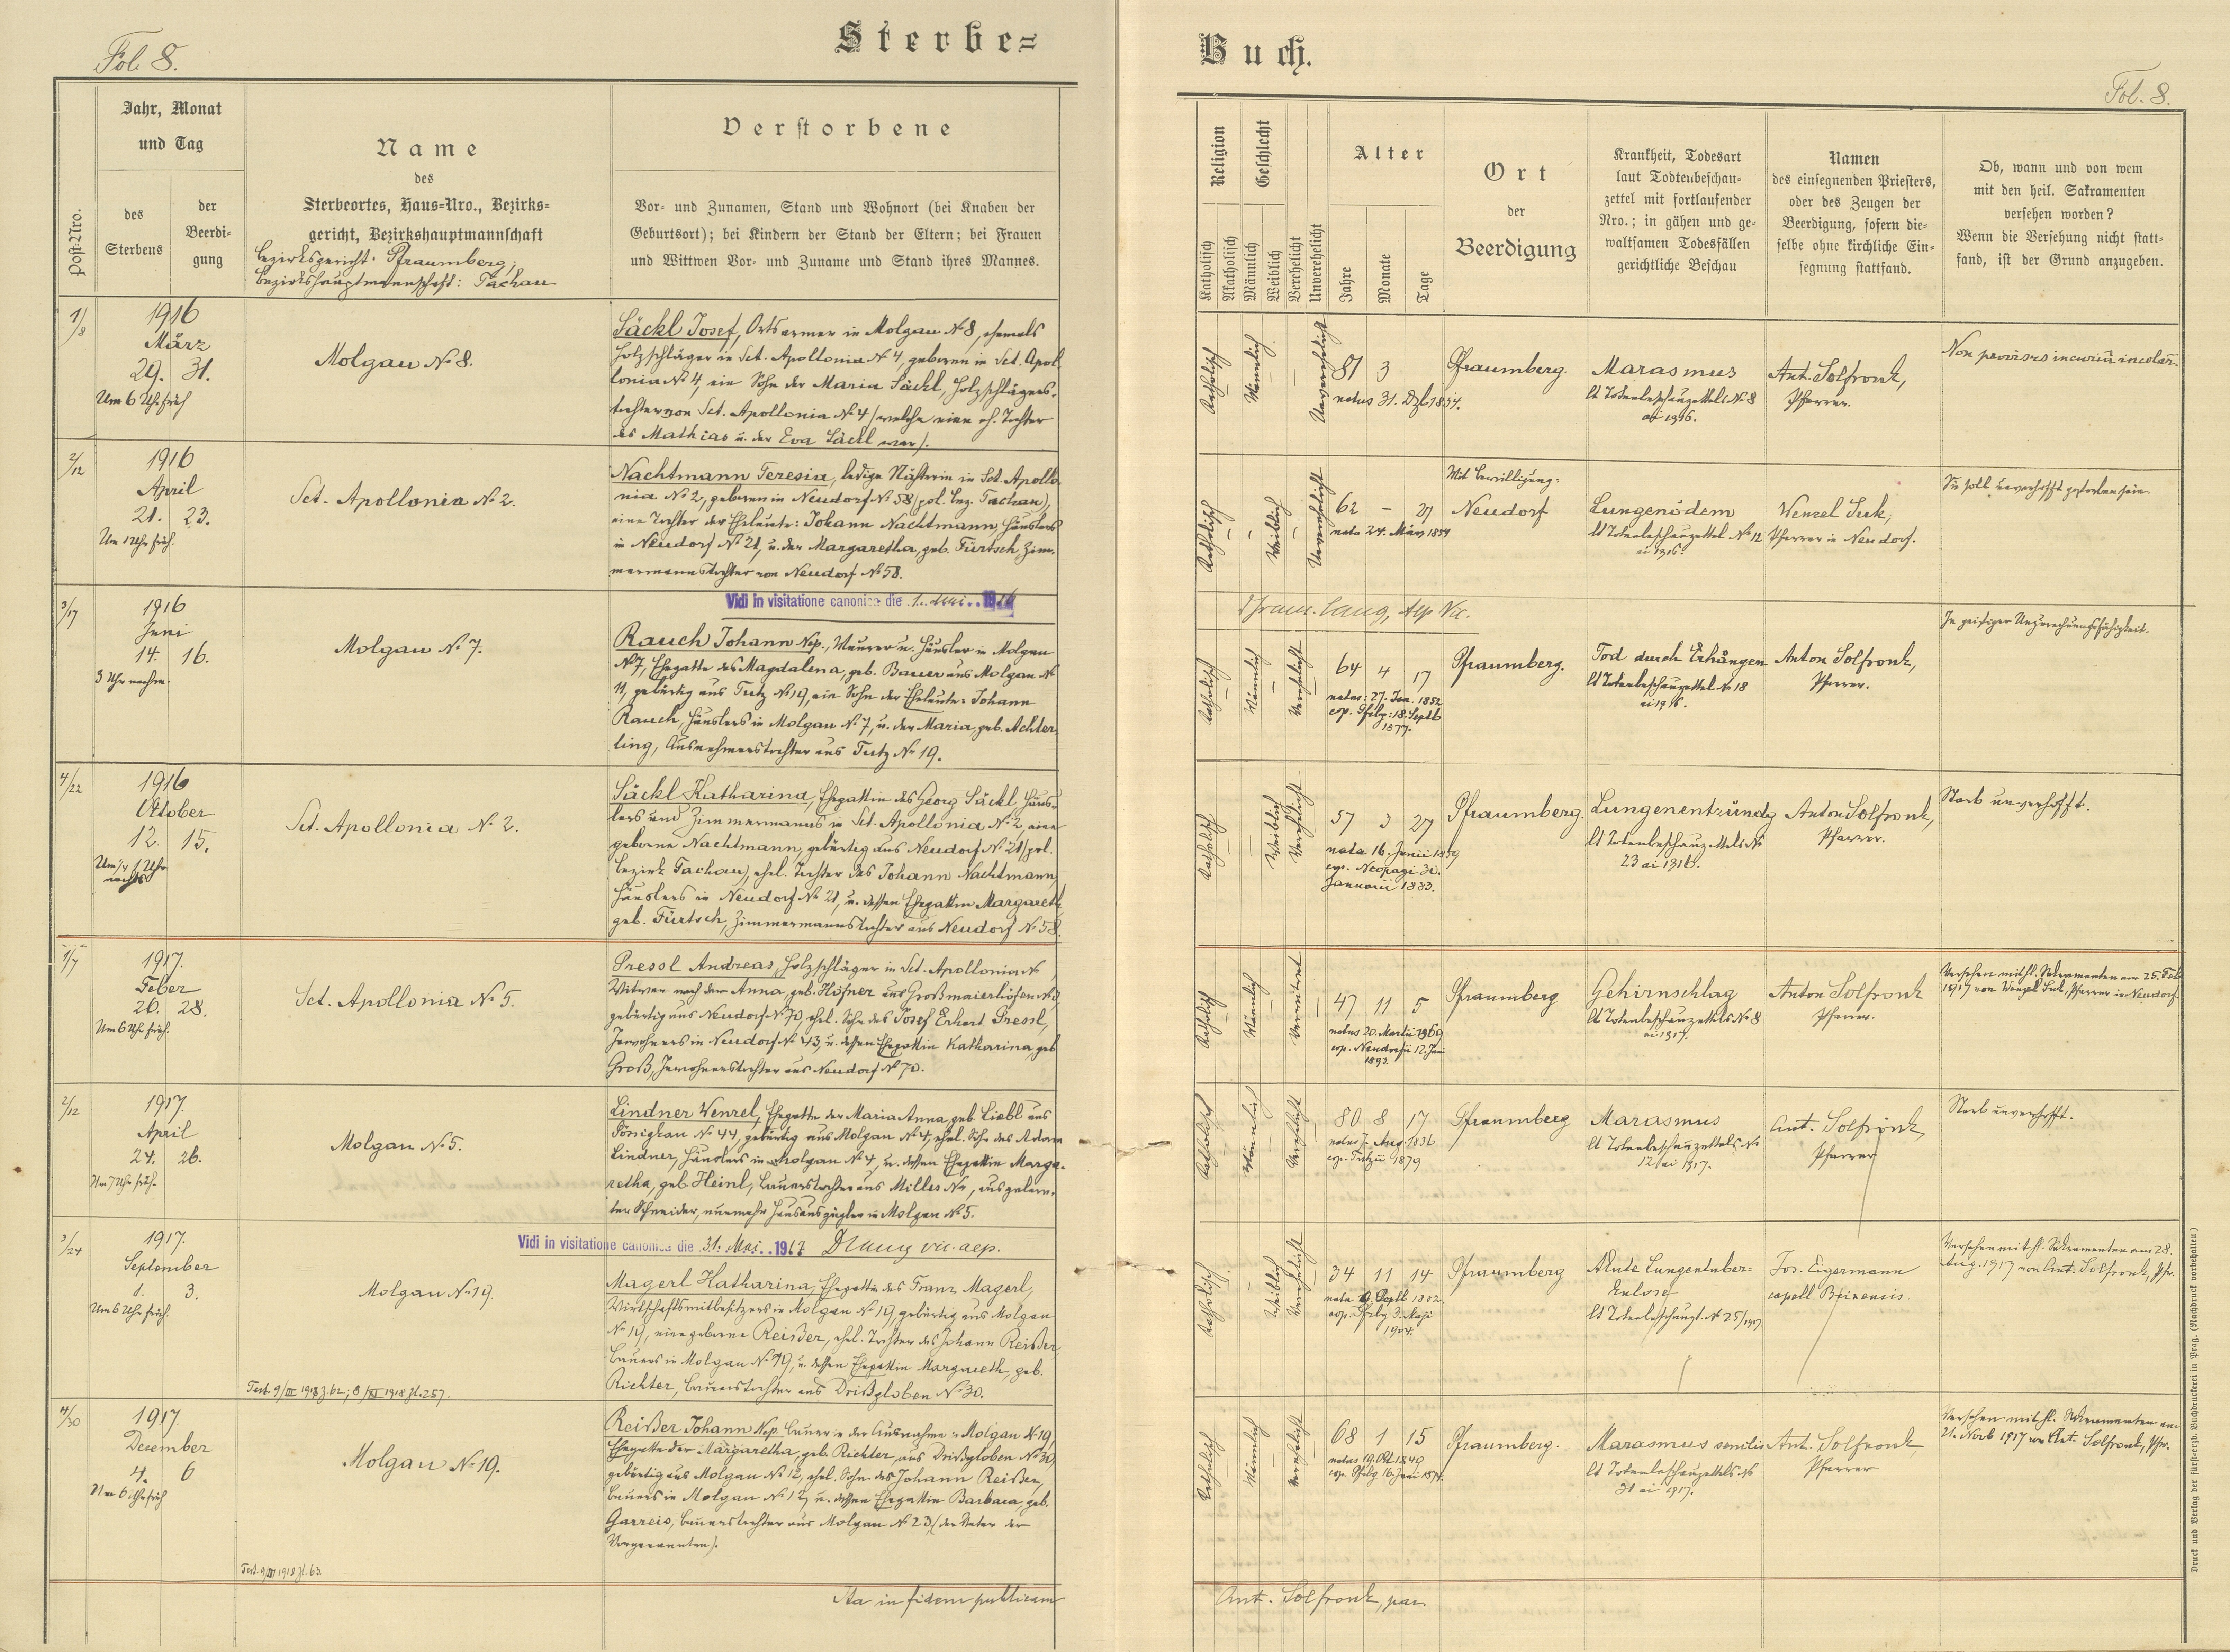 Fol. 8.
Sterbe=
Buch.
Fol. 8.
Post-Nro.
Jahr, Monat
und Tag
des
Sterbens
der
Beerdi-
gung
Name
des
Sterbeortes, Haus-Nro., Bezirks-
gericht, Bezirkshauptmannschaft
Bezirksgericht: Pfraumberg;
Bezirkshauptmannschaft: Tachau
Verstorbene
Vor- und Zunamen, Stand und Wohnort (bei Knaben der
Geburtsort); bei Kindern der Stand der Eltern; bei Frauen
und Wittwen Vor- und Zuname und Stand ihres Mannes.
Religion
Katholisch
Akatholisch
Geschlecht
Männlich
Weiblich
Verehelicht
Unverehelicht
Alter
Jahre
Monate
Tage
Ort
der
Beerdigung
Krankheit, Todesart
laut Todtenbeschau-
zettel mit fortlaufender
Nro.; in gähen und ge-
waltsamen Todesfällen
gerichtliche Beschau
Namen
des einsegnenden Priesters,
oder des Zeugen der
Beerdigung, sofern die-
selbe ohne kirchliche Ein-
segnung stattfand.
Ob, wann und von wem
mit den heil. Sakramenten
versehen worden?
Wenn die Versehung nicht statt-
fand, ist der Grund anzugeben.
1/8
1916
März
29. 31.
Um 6 Uhr früh
Molgau № 8.
Säckl Josef, Ortsarmer in Molgau № 8, ehemals
Holzschläger in Sct. Apollonia № 4, geboren in Sct. Apol
lonia № 4, ein Sohn der Maria Säckl, Holzschlägers-
tochter von Sct. Apollonia № 4 (welche eine eh. Tochter
des Mathias u. der Eva Säckl war).
Katholisch
Männlich
Unverehelicht
81 3
natus 31. Dez. 1834.
Pfraumberg.
Marasmus
lt Totenbeschauzettels № 8
ai 1916.
Ant. Solfronk,
Pfarrer.
Non provisus
2/12
1916
April
21. 23.
Um 1 Uhr früh.
Sct. Apollonia № 2.
Nachtmann Teresia, ledige Nähterin in Sct. Apollo
nia № 2, geboren in Neudorf № 58 (pol. Bez. Tachau),
eine Tochter der Eheleute: Johann Nachtmann, Häuslers
in Neudorf № 21, u. der Margaretha, geb. Fürtsch, Zim-
mermannstochter von Neudorf № 58.
Katholisch
Weiblich
Unverehelicht
62 – 27
nata 24. März 1854
Mit Bewilligung:
Neudorf
Lungenödem
lt Totenbeschauzettel № 12
ai 1916.
Wenzel Suk,
Pfarrer in Neudorf.
Sie soll unverhofft gestorben sein.
Vidi in visitatione canonica die 1. Mai 1916
Lang, Aep Vic.
3/17
1916
Juni
14. 16.
3 Uhr nachm.
Molgau № 7.
Rauch Johann Nep., Maurer u. Häusler in Molgau
№ 7, Ehegatte der Magdalena, geb. Bauer aus Molgau №
11, gebürtig aus Tutz № 19, ein Sohn der Eheleute: Johann
Rauch, Häuslers in Molgau № 7, u. der Maria, geb. Achter-
ling, Ausnehmerstochter aus Tutz № 19.
Katholisch
Männlich
Verehelicht
64 4 17
natus: 27. Jan. 1852
cop. Pfbg: 18. Septb
1877.
Pfraumberg.
Tod durch Erhängen
lt Totenbeschauzettel № 18
ai 1916.
Anton Solfronk,
Pfarrer.
In geistiger Unzurechnungsfähigkeit.
4/22
1916
Oktober
12. 15.
Um 1/4 1 Uhr
nachts
Sct. Apollonia № 2.
Säckl Katharina, Ehegattin des Georg Säckl, Häus-
lers und Zimmermanns in Sct. Apollonia № 2, eine
geborne Nachtmann, gebürtig aus Neudorf № 21 (pol.
Bezirk Tachau), ehel. Tochter des Johann Nachtmann,
Häuslers in Neudorf № 21, u. dessen Ehegattin Margareth,
geb. Fürtsch, Zimmermannstochter aus Neudorf № 58.
Katholisch
Weiblich
Verehelicht
57 3 27
nata 16. Junii 1859
cop. Neopagi 30.
Januarii 1883.
Pfraumberg.
Lungenentzündg
lt Totenbeschauzettels №
23 ai 1916.
Anton Solfronk,
Pfarrer.
Starb unverhofft.
1/7
1917.
Feber
26. 28.
Um 6 Uhr früh.
Sct. Apollonia № 5.
Pressl Andreas, Holzschläger in Sct. Apollonia №
Witwer nach der Anna, geb. Höfner aus Großmaierhöfen №
gebürtig aus Neudorf № 70, ehel. Sohn des Josef Erhart Pressl,
Inwohners in Neudorf № 43, u. dessen Ehegattin Katharina, geb
Groß, Inwohnerstochter aus Neudorf № 70.
Katholisch
Männlich
Verwitwet
47 11 5
natus 20. Martii 1869
cop. Neudorfii 12. Juni
1892
Pfraumberg
Gehirnschlag
lt Totenbeschauzettels № 8
ai 1917.
Anton Solfronk
Pfarrer.
Versehen mit hl. Sakramenten am 25. Feb
1917 von Wenzel Suk, Pfarrer in Neudorf.
2/12
1917.
April
24. 26.
Um 7 Uhr früh.
Molgau № 5.
Lindner Wenzel, Ehegatte der Maria Anna, geb. Liebl aus
Pössigkau № 44, gebürtig aus Molgau № 4, ehel. Sohn des Adam
Lindner, Häuslers in Molgau № 4, u. dessen Ehegattin Marga-
retha, geb. Heinl, Bauerstochter aus Milles №, ausgelern-
ter Schneider, nunmehr Hausauszügler in Molgau № 5.
Katholisch
Männlich
Verehelicht
80 8 17
natus 7. Aug. 1836
cop. Tutzii 1879
Pfraumberg
Marasmus
lt Totenbeschauzettels №
12 ai 1917.
Ant. Solfronk,
Pfarrer
Starb unverhofft.
Vidi in visitatione canonica die 31. Mai 1917 DLang vic. aep.
3/24
1917.
September
1. 3.
Um 6 Uhr früh.
Molgau № 19.
Test. 9/III 1918 J. 62; 8/XI 1918 Zl. 257.
Magerl Katharina, Ehegattin des Franz Magerl,
Wirtschaftsmitbesitzers in Molgau № 19, gebürtig aus Molgau
№ 19, eine geborne Reißer, ehel. Tochter des Johann Reißer,
Bauers in Molgau № 19, u. dessen Ehegattin Margareth, geb.
Richter, Bauerstochter aus Drißgloben № 30.
Katholisch
Weiblich
Verehelicht
34 11 14
nata Septb 1882.
cop. Pfbg 3. Maji
1904.
Pfraumberg
Akute Lungentuber-
kulose
lt Totenbeschauzt. № 25/1917.
Jos. Eigermann
capell.
Versehen mit hl. Sakramenten am 28.
Aug. 1917 von Ant. Solfronk, Pfr.
4/30
1917.
Dezember
4. 6
Um 6 Uhr früh
Molgau № 19.
Test. 9/III 1918 Zl. 63.
Reißer Johann Nep. Bauer in der Ausnahme in Molgau № 19,
Ehegatte der Margaretha, geb. Richter, aus Drißgloben № 30,
gebürtig aus Molgau № 12, ehel. Sohn des Johann Reißer,
Bauers in Molgau № 12, u. dessen Ehegattin Barbara, geb.
Garreis, Bauerstochter aus Molgau № 23, (der Vater der
Vorgenannten).
Katholisch
Männlich
Verehelicht
68 1 15
natus 19. Okt 1849
cop. Pfbg 16. Juni 1874.
Pfraumberg.
Marasmus senilis
lt Totenbeschauzettels №
31 ai 1917.
Ant. Solfronk,
Pfarrer
Versehen mit hl. Sakramenten am
21. Novb 1917 von Ant. Solfronk, Pfr.
Ita in fidem publicam
Ant. Solfronk, par.
Druck und Verlag der fürsterzb. Buchdruckerei in Prag. (Nachdruck vorbehalten)